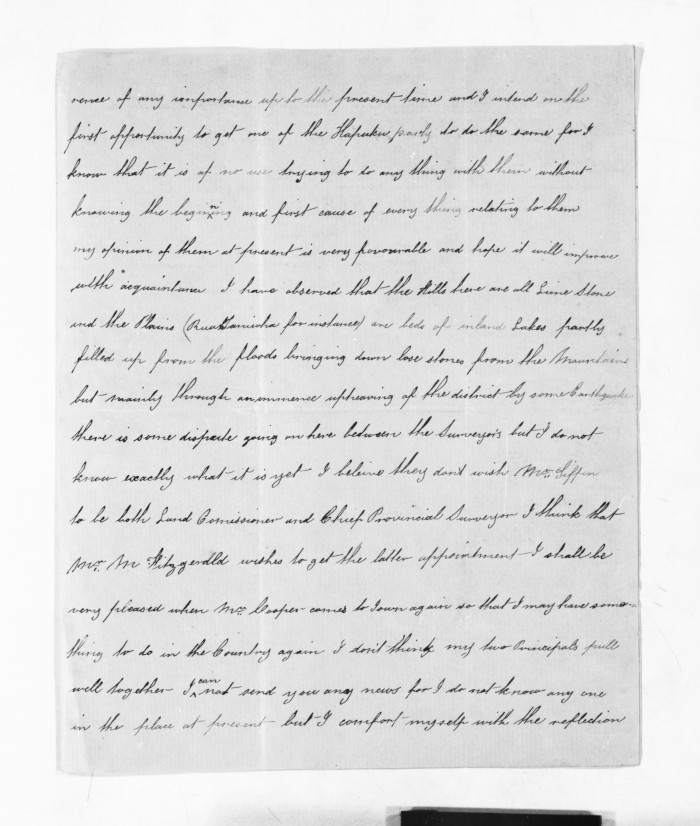 rence of any importance up to the present time and I intend on the
first opportunity to get one of the Hapuku party to do the same for I
know that it is of no use trying to do any thing with them without
knowing the beginning and first cause of every thing relating to them
my opinion of them at present is very favourable and hope it will improve
with acquaintance I have observed that the Hills here are all Lime Stone
and the Plains (Ruataniwha for instance) are beds of inland Lakes partly
filled up from the floods bringing down lose stones from the Mountains
but mainly through an immence upheaving of the district by some Earthquake
there is some dispute going on here between the Surveyors but I do not
know exactly what it is yet I beleive they dont wish Mr. Tiffen
to be both Land Comissioner and Chief Provincial Surveyor I think that
Mr. M Fitzgerdld wishes to get the latter appointment I shall be
very pleased when Mr Cooper comes to Town again so that I may have some=
thing to do in the Country again I don't think my two Principals pull
well together I can not send you any news for I do not know any one
in the place at present but I comfort myself with the reflection